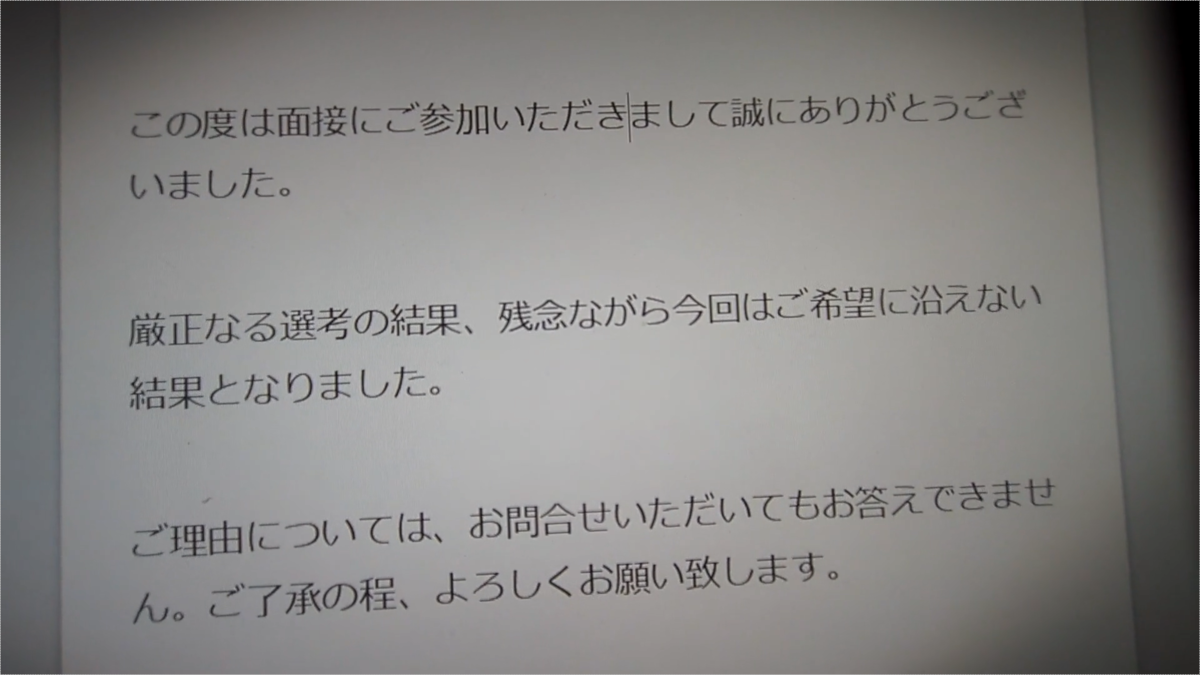 この度は面接にご参加いただきまして誠にありがとうござ
いました。
厳正なる選考の結果、残念ながら今回はご希望に沿えない
結果となりました。
ご理由については、お問合せいただいてもお答えできませ
ん。ご了承の程、よろしくお願い致します。